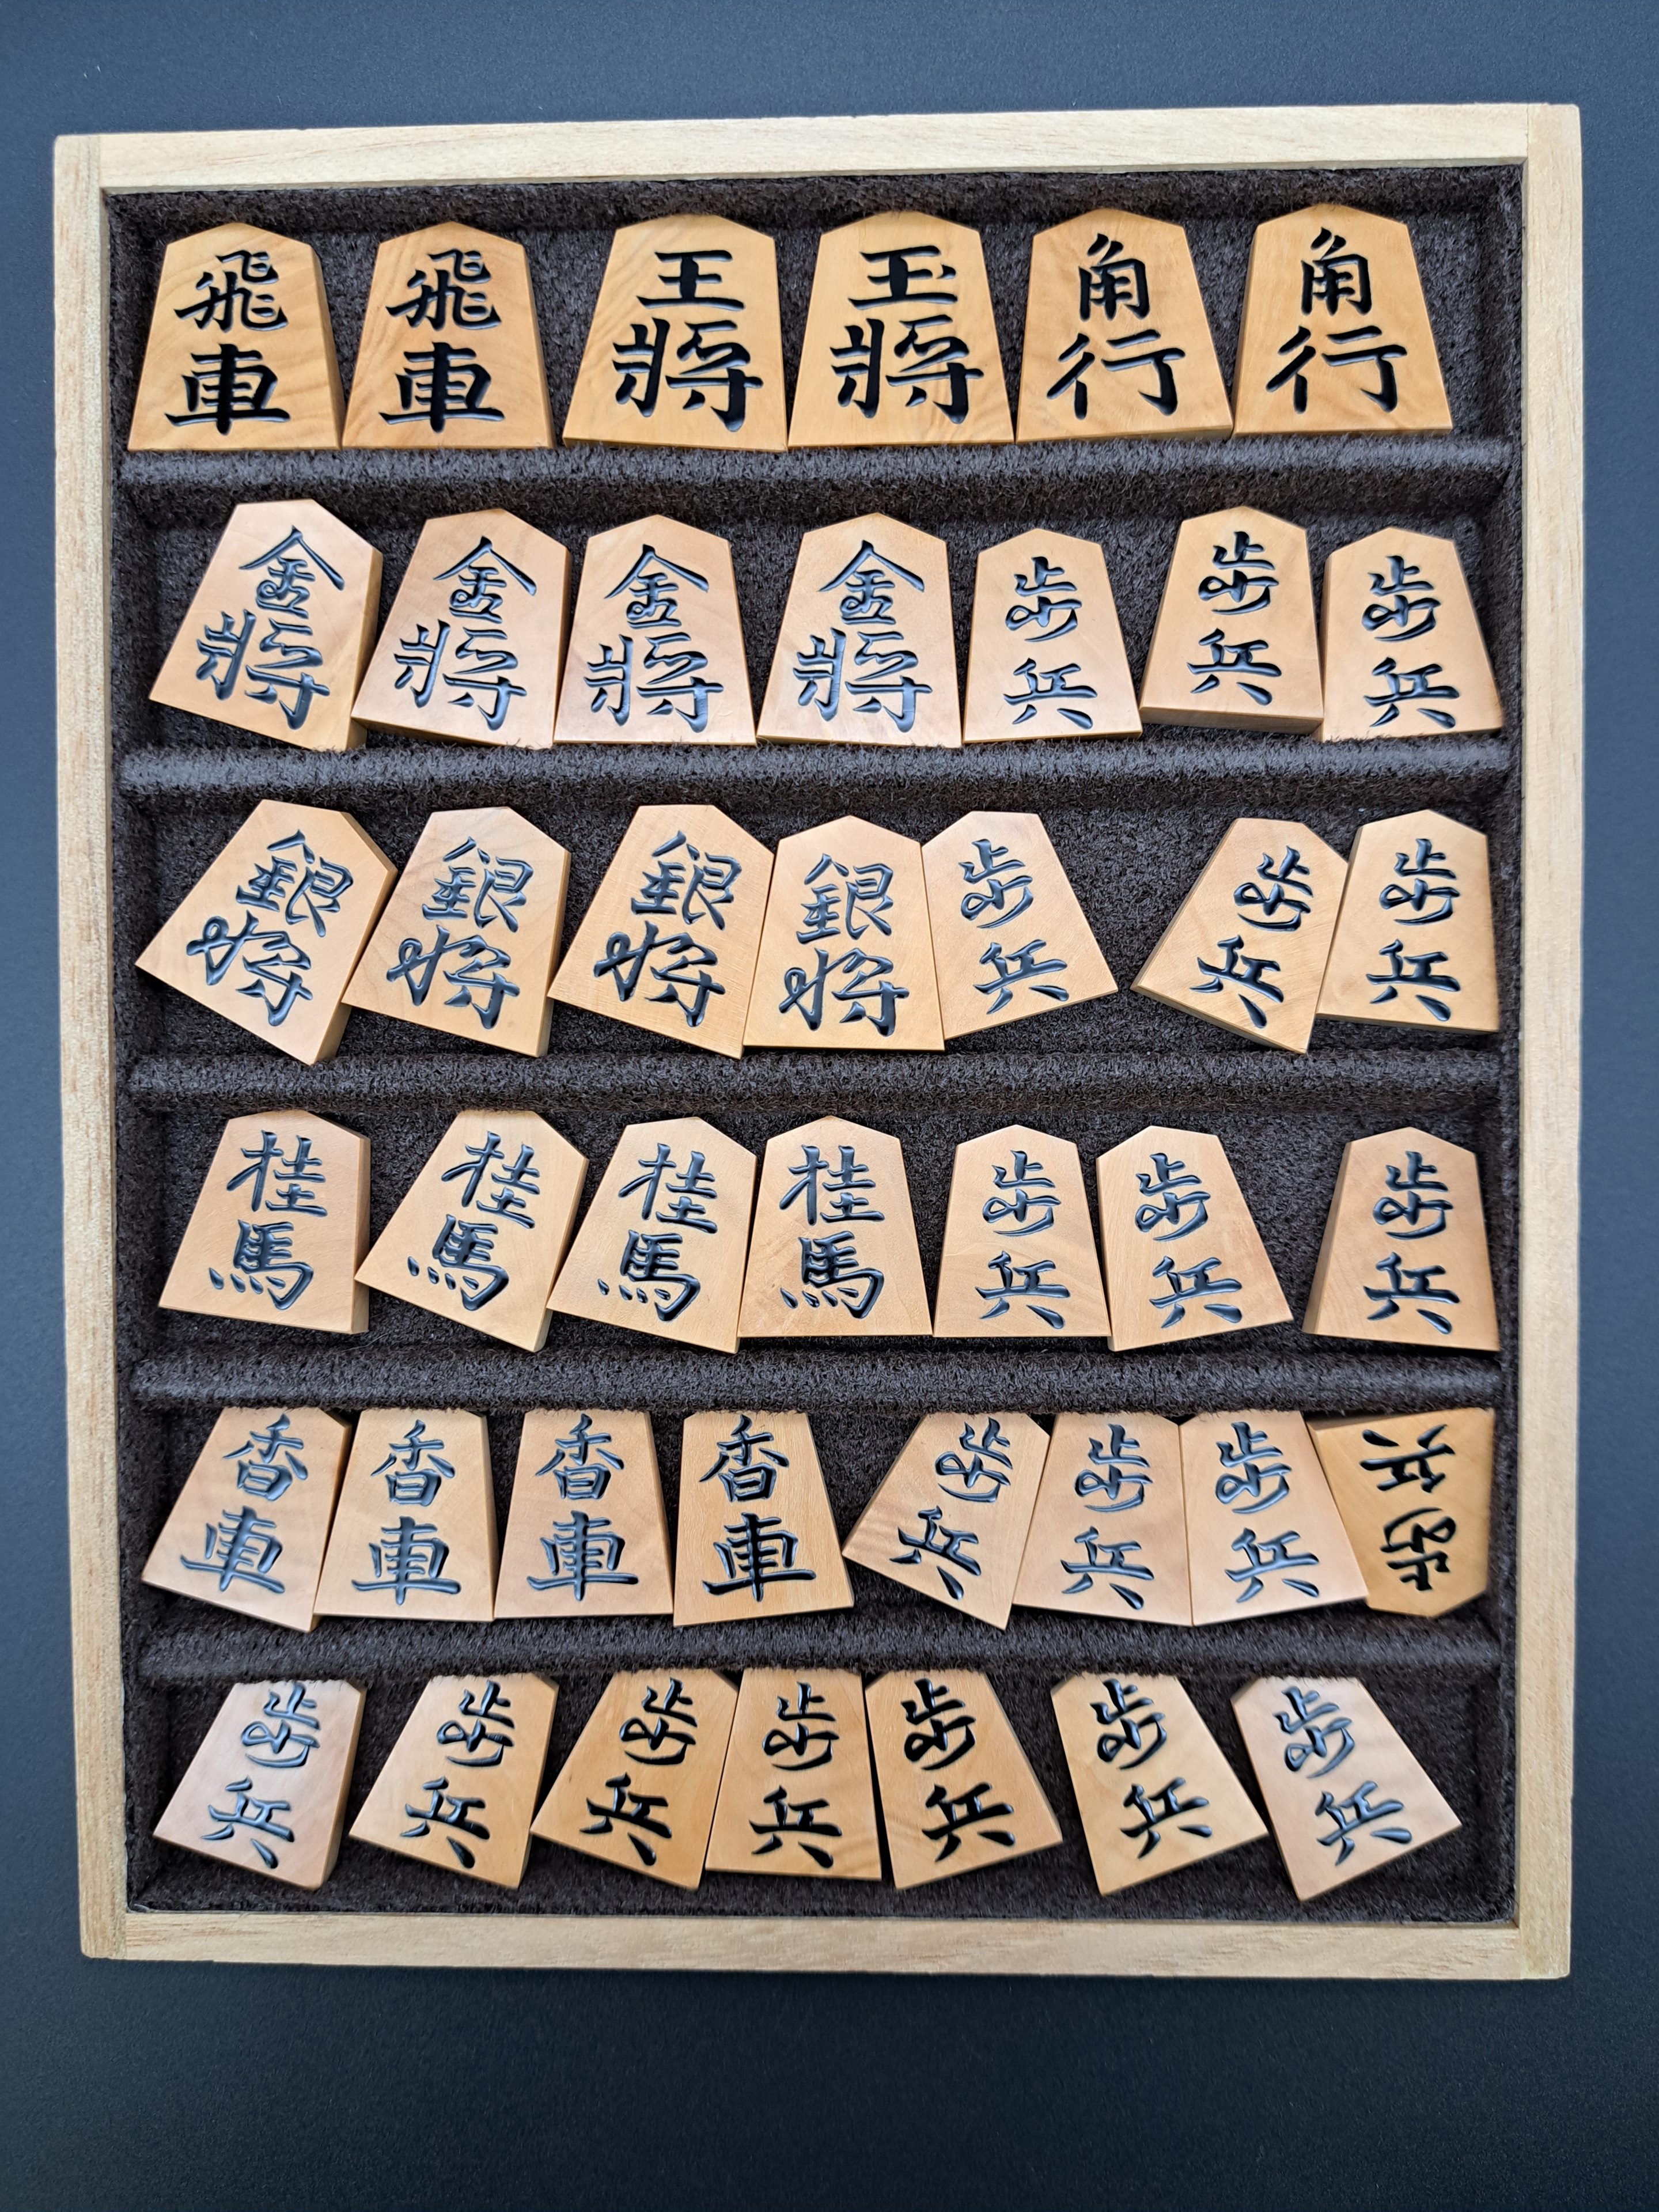 飛車 飛車 王將 玉將 角行 角行
金將 金將 金將 金將 歩兵 歩兵 歩兵
銀将 銀将 銀将 銀将 歩兵 歩兵 歩兵
桂馬 桂馬 桂馬 桂馬 歩兵 歩兵 歩兵
香車 香車 香車 香車 歩兵 歩兵 歩兵 歩兵
歩兵 歩兵 歩兵 歩兵 歩兵 歩兵 歩兵